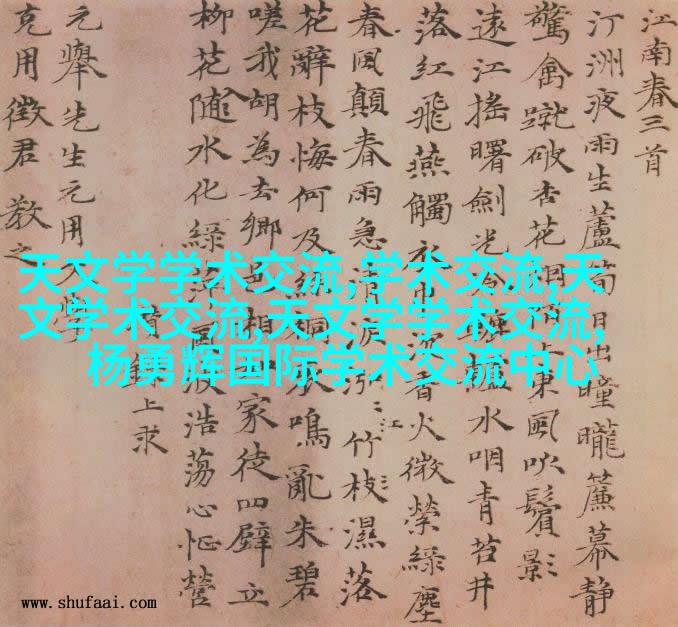 江南春三首
汀洲夜雨生蘆筍日出曈曨簾幕靜
驚禽蹴破杏花烟陌上東風吹鬢影
遠江搖曙劍光水咽青苔井
落紅飛燕觸衣香火微縈綠塵
春風顛春雨急清淚泓泓江竹枝濕落
花辭枝悔何及絲桐哀鳴亂朱碧
嗟我胡為去鄉邑相家徒四壁立
柳花隨水化綠萍風波浩蕩心怔營
上求
元舉先生元用文學
克用徵君教之
天文学学术交流,学术交流,天
文学术交流,天文学学术交流,
杨勇辉国际学术交流中心
www.shufaai.com